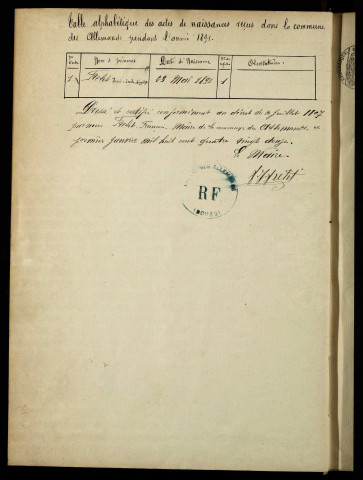 Table alphabétique des actes de naissances reçus dans la commune
des Allemands pendant l'année 1891.
Nom & Prénoms Date de Naissance Observations
1 03 Mai 1891 1
Dressé et certifié conformément au décret du 20 juillet 1807
par nous Maire de la commune des Allemands, ce
premier janvier mil huit cent quatre vingt douze.
Le Maire
RF
(DOUBS)